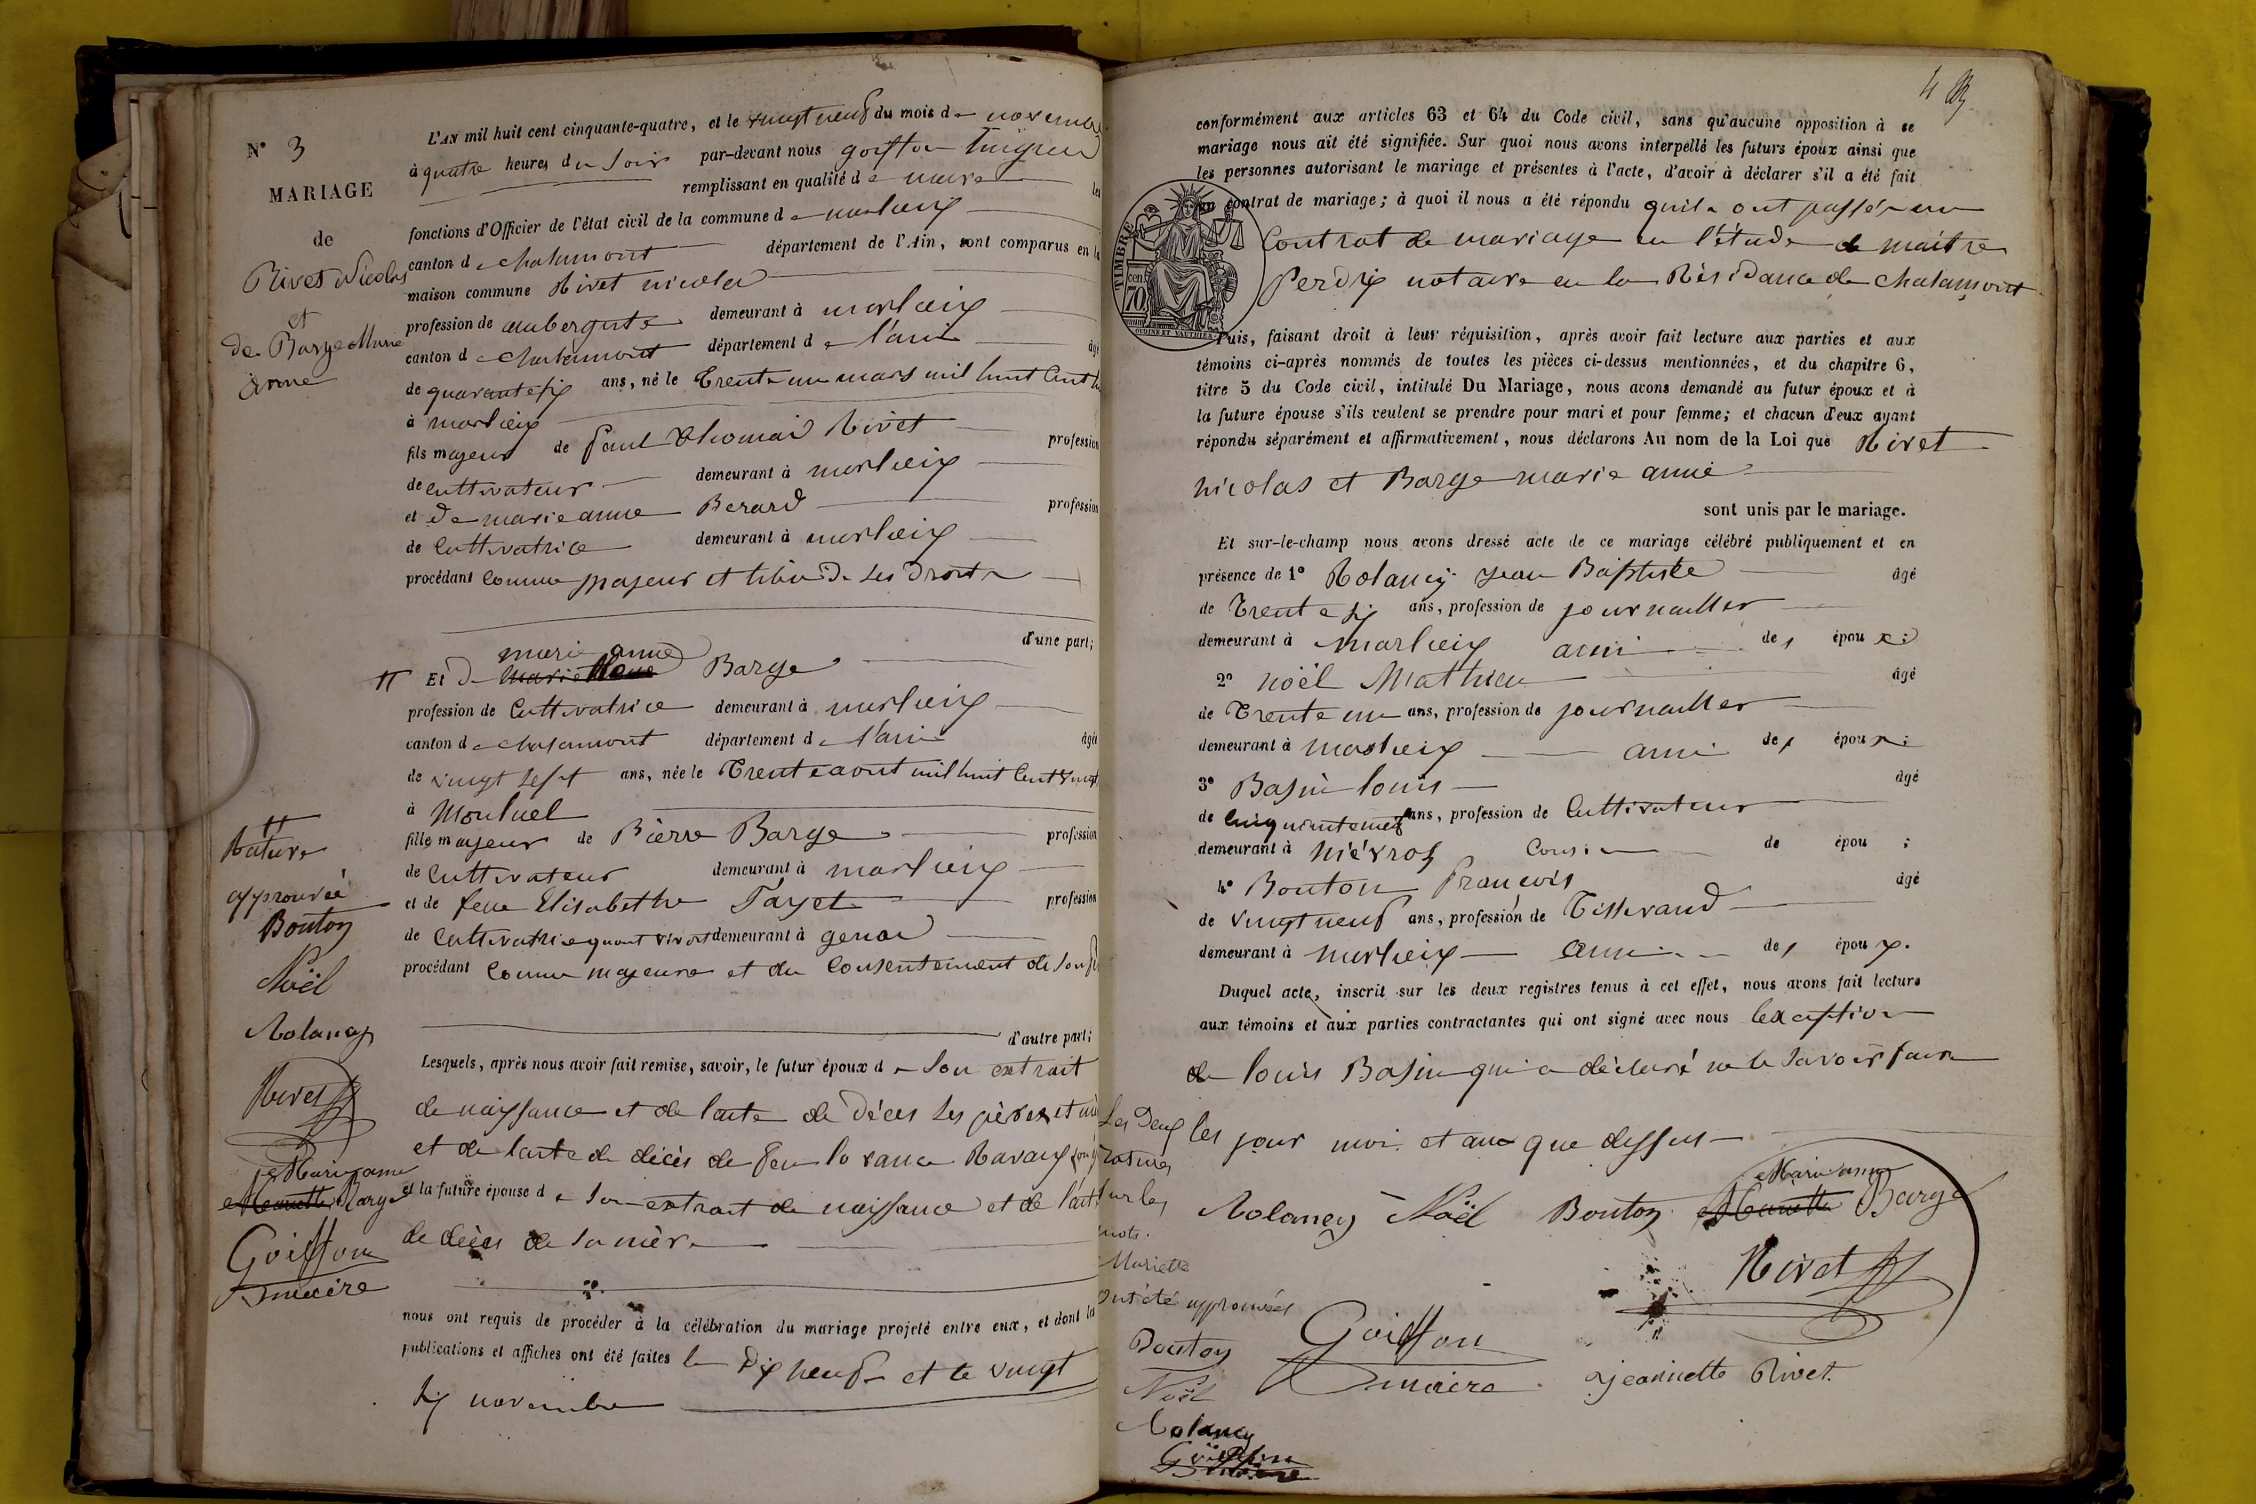 N° 3
MARIAGE
de
Rivet Nicolas
et
de Barge Marie
anne
L'AN mil huit cent cinquante-quatre, et le vingt neuf du mois de novembre
à quatre heures du soir par-devant nous goiffon
remplissant en qualité de maire les
fonctions d'Officier de l'état civil de la commune de marlieix
canton de chalamont département de l'Ain, sont comparus en la
maison commune Rivet nicolas
profession de aubergiste demeurant à marlieix
canton de chalamont département de l'ain âgé
de quarante six ans, né le Trente un mars mil huit Cent
à marlieix
fils majeur de Paul Thomas Rivet profession
de cultivateur demeurant à marlieix
et de marie anne Berard profession
de Cultivatrice demeurant à marlieix
procédant comme majeur et libre de ses droits
d'une part;
marie anne
Et de Barge
profession de Cultivatrice demeurant à marlieix
canton de chalamont département de l'ain âgée
de vingt sept ans, née le Trente aout mil huit Cent vingt
à Montluel
fille majeur de Pierre Barge profession
de Cultivateur demeurant à marlieix
et de feue Elisabethe Fayet profession
de Cultivatrice quant vivait demeurant à
procédant comme majeure et du Consentement de son
d'autre part;
Lesquels, après nous avoir fait remise, savoir, le futur époux de son extrait
de naissance et de l'acte de décès ses pères et
et de l'acte de décès de feu
et la future épouse de son extrait de naissance et de l'acte
de décès de sa mère
nous ont requis de procéder à la célébration du mariage projeté entre eux, et dont les
publications et affiches ont été faites le Dix neuf et le vingt
six novembre
Rature
approuvée
Bouton
Noël
Rolancy
Rivet
Marie anne
Mariette Barge
Goiffon
maire
4
conformément aux articles 63 et 64 du Code civil, sans qu'aucune opposition à ce
mariage nous ait été signifiée. Sur quoi nous avons interpellé les futurs époux ainsi que
les personnes autorisant le mariage et présentes à l'acte, d'avoir à déclarer s'il a été fait
un contrat de mariage; à quoi il nous a été répondu qu'ils ont passé un
Contrat de mariage en l'étude de maitre
Perdrix notaire en la Résidance de chalamont
TIMBRE
70 cen
OUDINE ET VAUTHIER
Puis, faisant droit à leur réquisition, après avoir fait lecture aux parties et aux
témoins ci-après nommés de toutes les pièces ci-dessus mentionnées, et du chapitre 6,
titre 5 du Code civil, intitulé Du Mariage, nous avons demandé au futur époux et à
la future épouse s'ils veulent se prendre pour mari et pour femme; et chacun d'eux ayant
répondu séparément et affirmativement, nous déclarons Au nom de la Loi que Rivet
nicolas et Barge marie anne
sont unis par le mariage.
Et sur-le-champ nous avons dressé acte de ce mariage célébré publiquement et en
présence de 1° Rolancy Jean Baptiste âgé
de Trente six ans, profession de journallier
demeurant à marlieix ami des époux;
2° noël Mathieu âgé
de Trente un ans, profession de journallier
demeurant à marlieix ami des époux;
3° Basin louis âgé
de Cinquante neuf ans, profession de Cultivateur
demeurant à niévroz Cousin de épou ;
4° Bouton François âgé
de vingt neuf ans, profession de Tisserand
demeurant à marlieix ami des époux.
Duquel acte, inscrit sur les deux registres tenus à cet effet, nous avons fait lecture
aux témoins et aux parties contractantes qui ont signé avec nous l'exception
de louis Basin qui a déclaré ne le savoir faire
les jour moi et an que dessus
Les Deux
ratures
sur les
mots
Mariette
ont été approuvées
Rolancy Noël Bouton Marie anne
Mariette Barge
Rivet
Bouton
Noël
Rolancy
Goiffon
maire
Goiffon
maire
jeannette Rivet